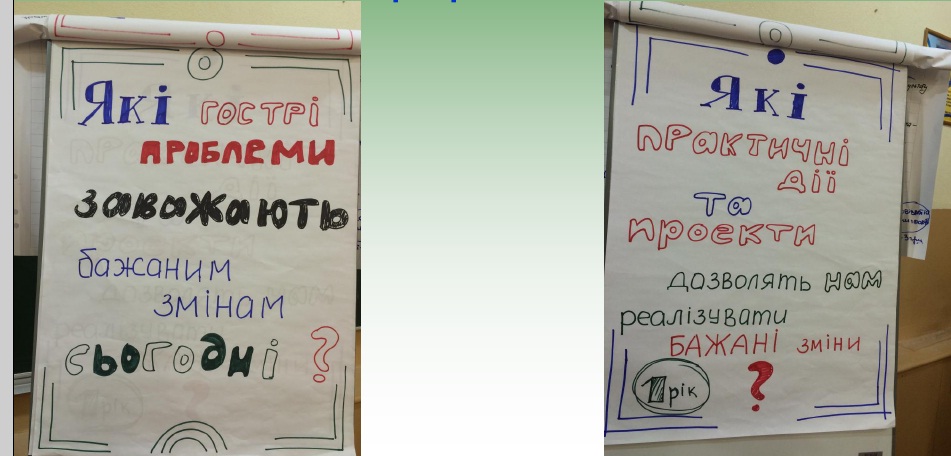 Які гострі
проблеми
заважають
бажаним
змінам
сьогодні ?
Які
практичні
дії
та
проекти
дозволять нам
реалізувати
БАЖАНІ зміни
1 рік ?